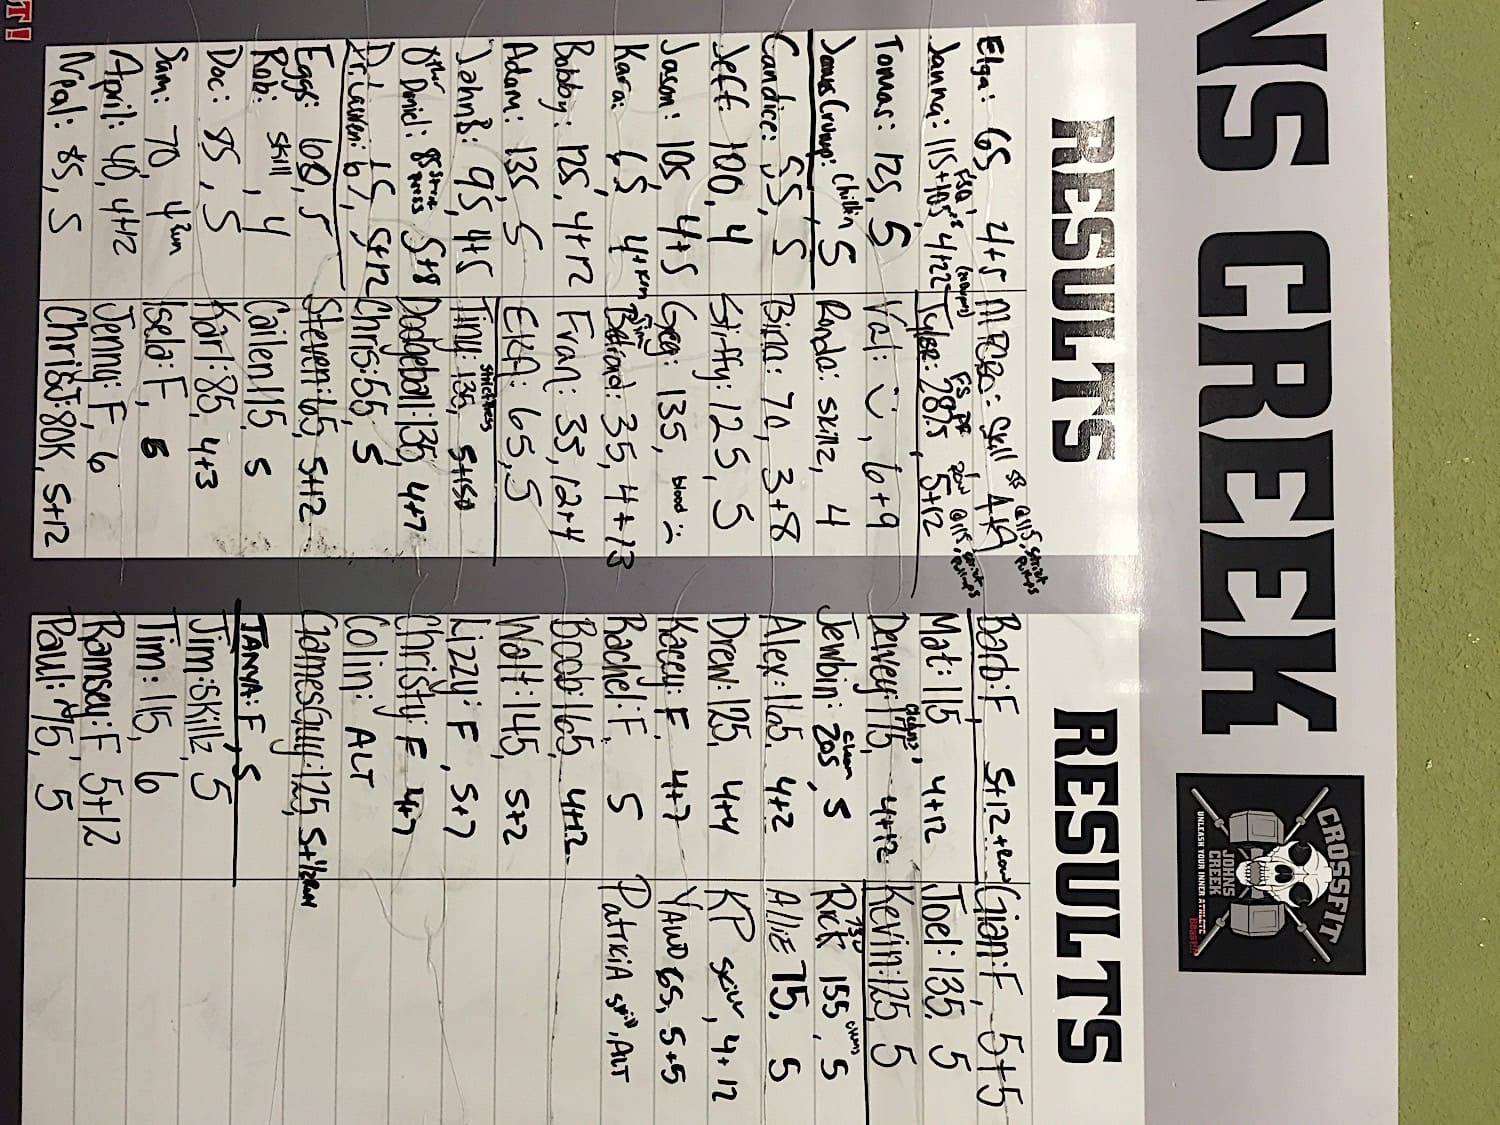 T!
NS CREEK
CROSSFIT
JOHNS
CREEK
UNLEASH YOUR INNER ATHLETE
Beast!!
RESULTS
Elga: 65 4+5
Janna: 115+105 FSQ, 4+22
Tomas: 125, 5
James Group: chillin 5
Candice: 55, 5
Jeff: 100, 4
Jason: 105, 4+5
Kara: 65, 4+run
Bobby: 125, 4+12
Adam: 135, 5
John B: 95, 4+5
other Daniel: 85 strict press 5+8
D: 15, 5+12
Dr. Lauren: 67,
Eggs: 60, 5
Rob: skill, 4
Doc: 85, 5
Sam: 70, 4 Run
April: 40, 4+12
Neal: 85, 5
McFBC: Skill ss AKA @115, strict pullups
Tyler: 285, FS PR 5+12 @115, strict pullups
Val: 6+9
Ronda: skillz, 4
Bijna: 70, 3+8
Stiffy: 125, 5
Greg: 135, blood
Botond: 35, 4+13
Fran: 33, 12+4
EKA: 65, 5
Tiny: 135, 5+150
Dodgeball: 135, 4+7
Chris: 55, 5
Steven: 65, 5+12
Cailen 115, 5
Karl: 85, 4+3
Isela: F, 5
Jenny: F, 6
Chris J: 80K, 5+12
RESULTS
Barb: F, 5+12 + Row
Mat: 115 4+12
Davey: 175, cleans, 4+12
Jewbin: clean 205, 5
Alex: 165, 4+2
Drew: 125, 4+4
Kacey: F, 4+7
Rachel: F, 5
Boob 165, 4+12
Walt: 145, 5+2
Lizzy: F, 5+7
Christy: F 4+7
Colin: ALT
GamesGuy: 125, 5+1/2 Run
TANYA: F, 5
Jim: Skillz, 5
Tim: 115, 6
Ramsey: F 5+12
Paul: 75, 5
Gian: F, 5+5
Joel: 135, 5
Kevin: 125, 5
Rick 155 cleans, 5
Allie 75, 5
KP skill, 4+12
YAWD 65, 5+5
Patricia skill, ALT